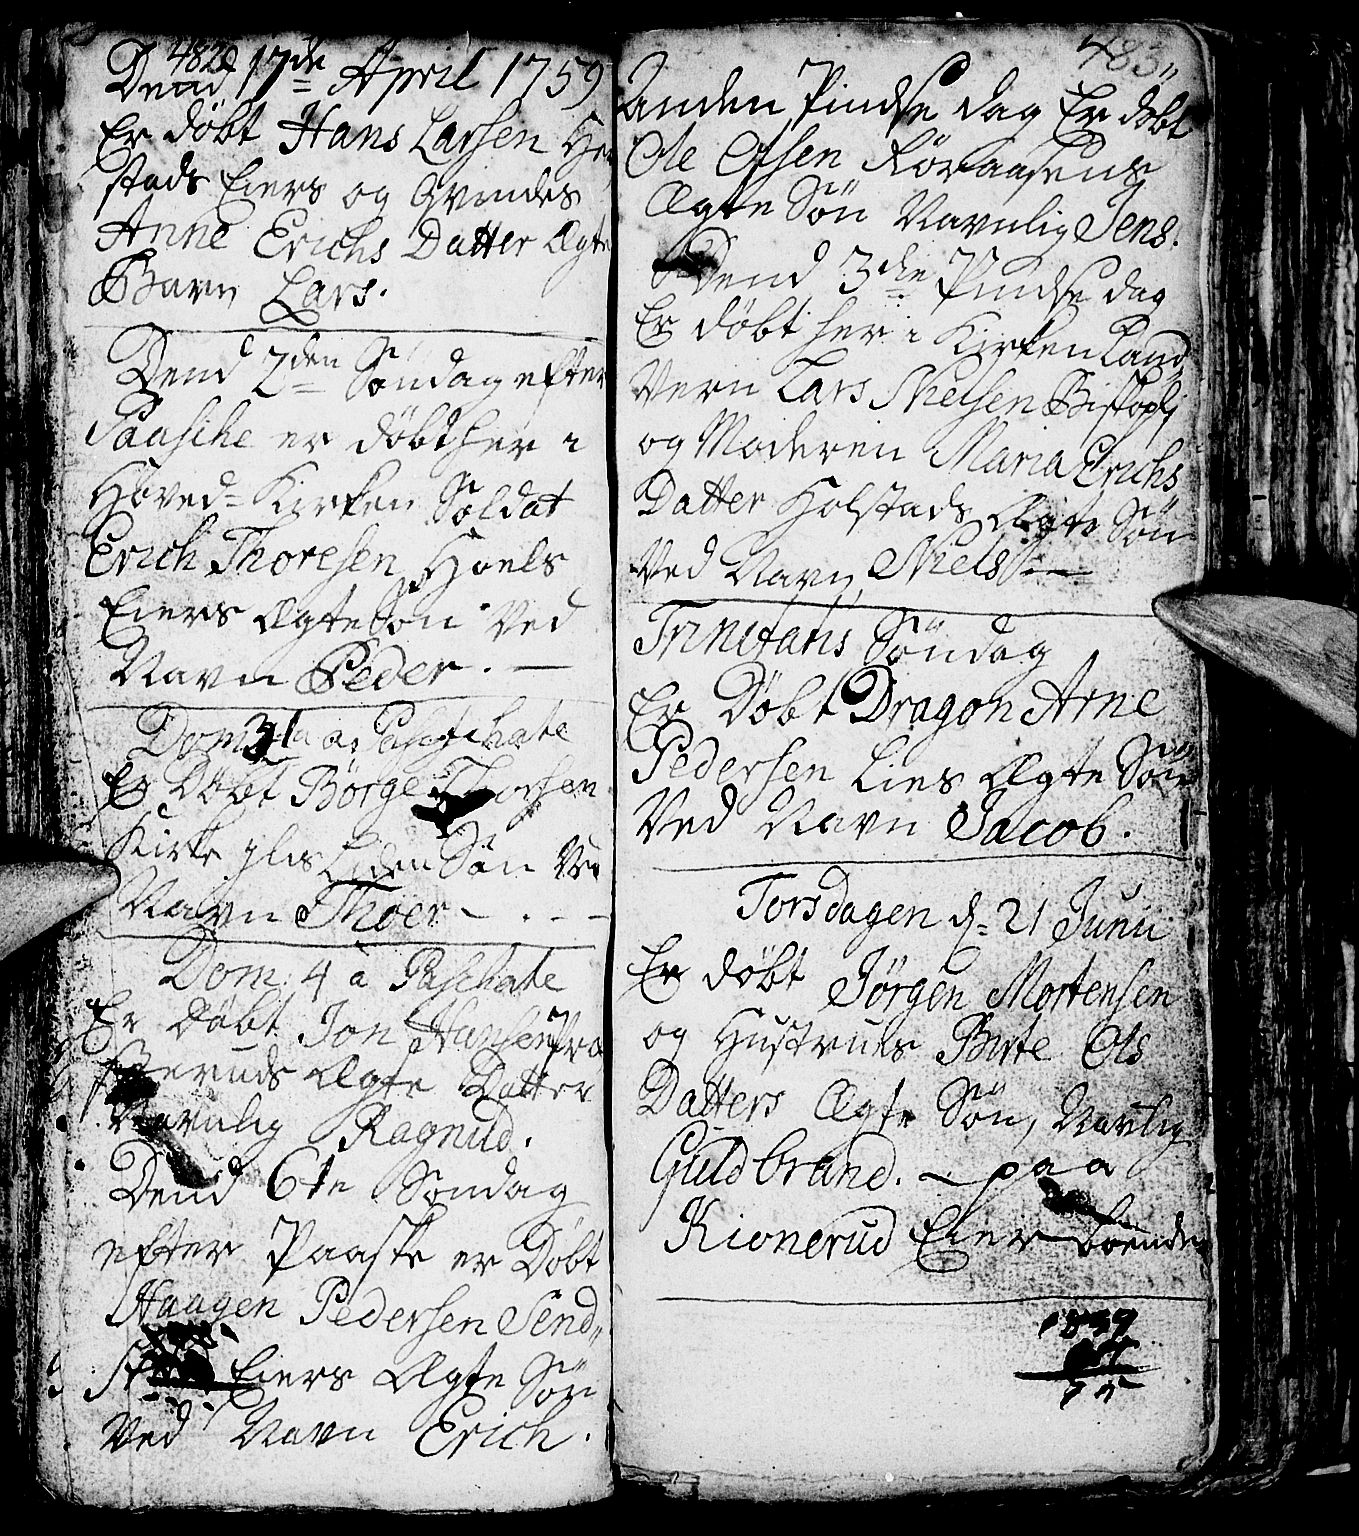 482
Dend 17de April 1759
Er døbt Hans Larsen
stads Eiers og Qvindes
Anne Erichs Datter Ægte
Barn Lars.
Dend 2den Søndag efter
Paasche er døbt her i
Hoved-Kirken Soldat
Erich Thoresen Hoels
Eiers Ægte Søn Ved
Navn Peder. —
Dom 3 a Paschate
Er Døbt Børge Thorsen
Kirke Søn Ved
Navn Thoer - . - -
Dom: 4 a Paschate
Er Døbt Jon Hansen
Ægte Datter
Navnlig Ragnild.
Dend 6te Søndag
efter Paaske er Døbt
Haagen Pedersen Send„
Eiers Ægte Søn
Ved Navn Erich.
483„
Anden Pindse dag Er døbt
Ole Olsen Røraasens
Ægte Søn Navnlig Jens.
Dend 3die Pindse dag
Er døbt her i Kirken Land
Vern Lars Nielsen
og Moderen Maria Erichs
Datter Holstads Ægte Søn
Ved Navn Niels —
Trinitatis Søndag
Er Døbt Dragon Arne
Pedersen Lies Ægte Søn
Ved Navn Jacob.
Torsdagen d. 21 Junii
Er døbt Jørgen Mortensen
og Hustrues Birte Ols
Datters Ægte Søn, Navnlig
Guldbrand. - paa
Kionerud Eier boende